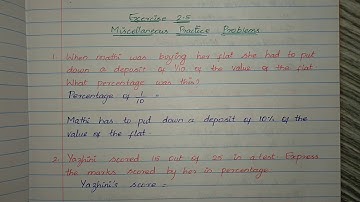 Exercise 2.5
Miscellaneous Practice Problems
1. When Mathi was buying her flat she had to put
down a deposit of 1/10 of the value of the flat
What percentage was this?
Percentage of 1/10 =
Mathi has to put down a deposit of 10% of the
value of the flat
2. Yazhini scored 15 out of 25 in a test Express
the marks scored by her in percentage
Yazhini's score =